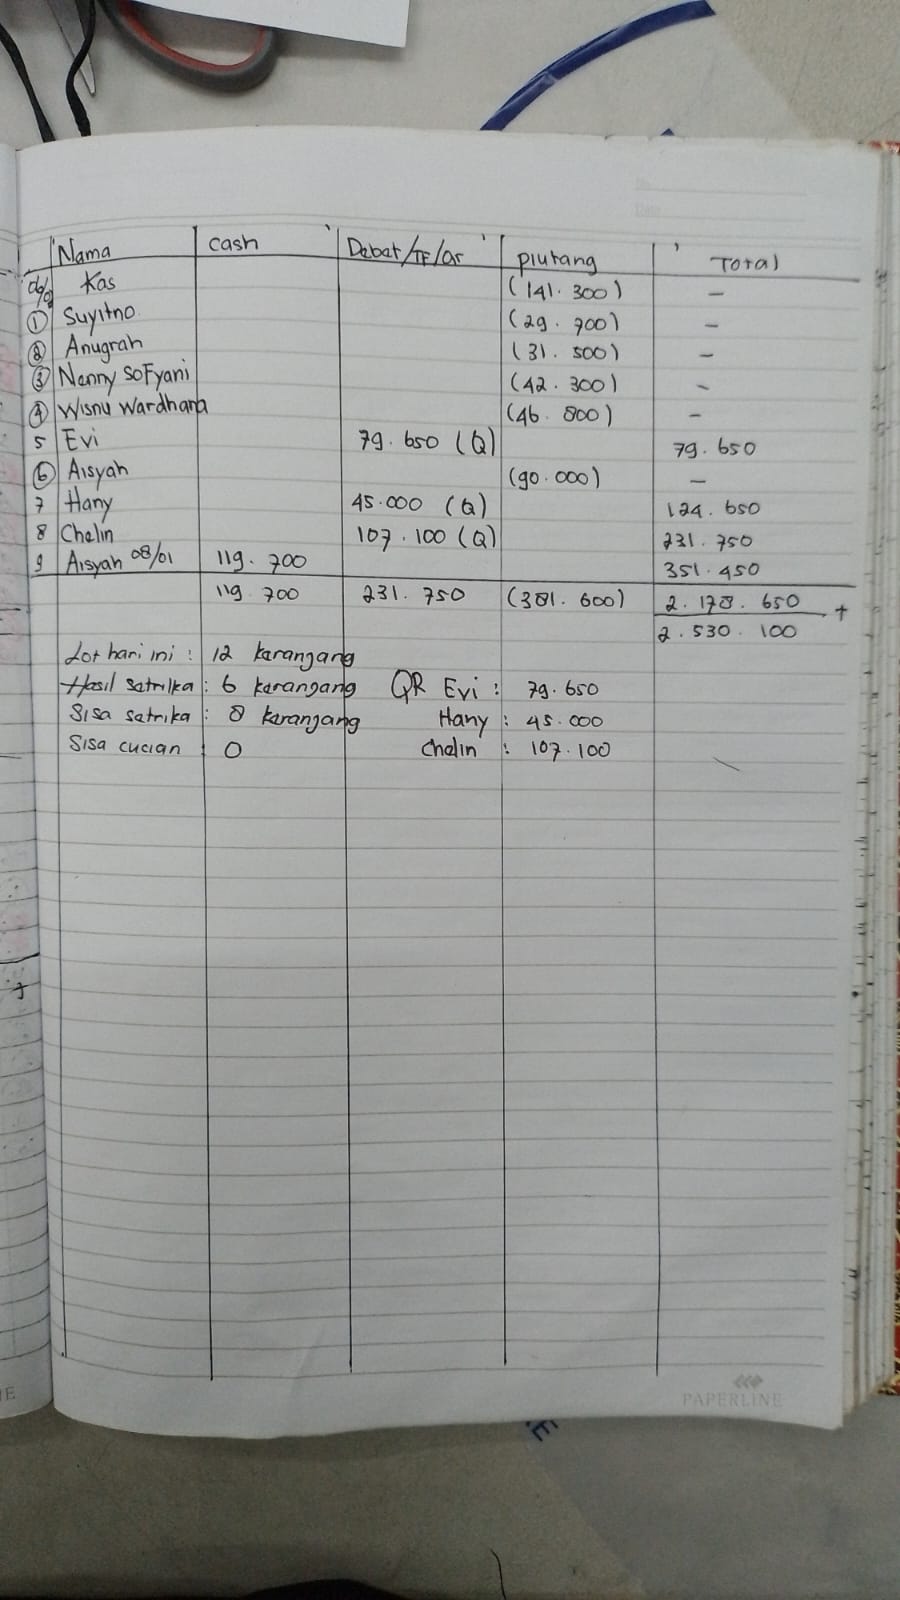 Nama cash Debet/TF/Qr piutang Total
Kas (141.300) -
① Suyitno (29.700) -
② Anugrah (31.500) -
③ Nanny Sofyani (42.300) -
④ Wisnu Wardhana (46.800) -
5 Evi 79.650 (Q) 79.650
⑥ Aisyah (90.000) -
7 Hany 45.000 (Q) 124.650
8 Chelin 107.100 (Q) 231.750
9 Aisyah 08/01 119.700 351.450
119.700 231.750 (381.600) 2.178.650 +
2.530.100
Lot hari ini : 12 karanjang
Hasil satrika : 6 karanjang QR Evi : 79.650
Sisa satrika : 8 karanjang Hany : 45.000
Sisa cucian : 0 Chelin : 107.100
PAPERLINE